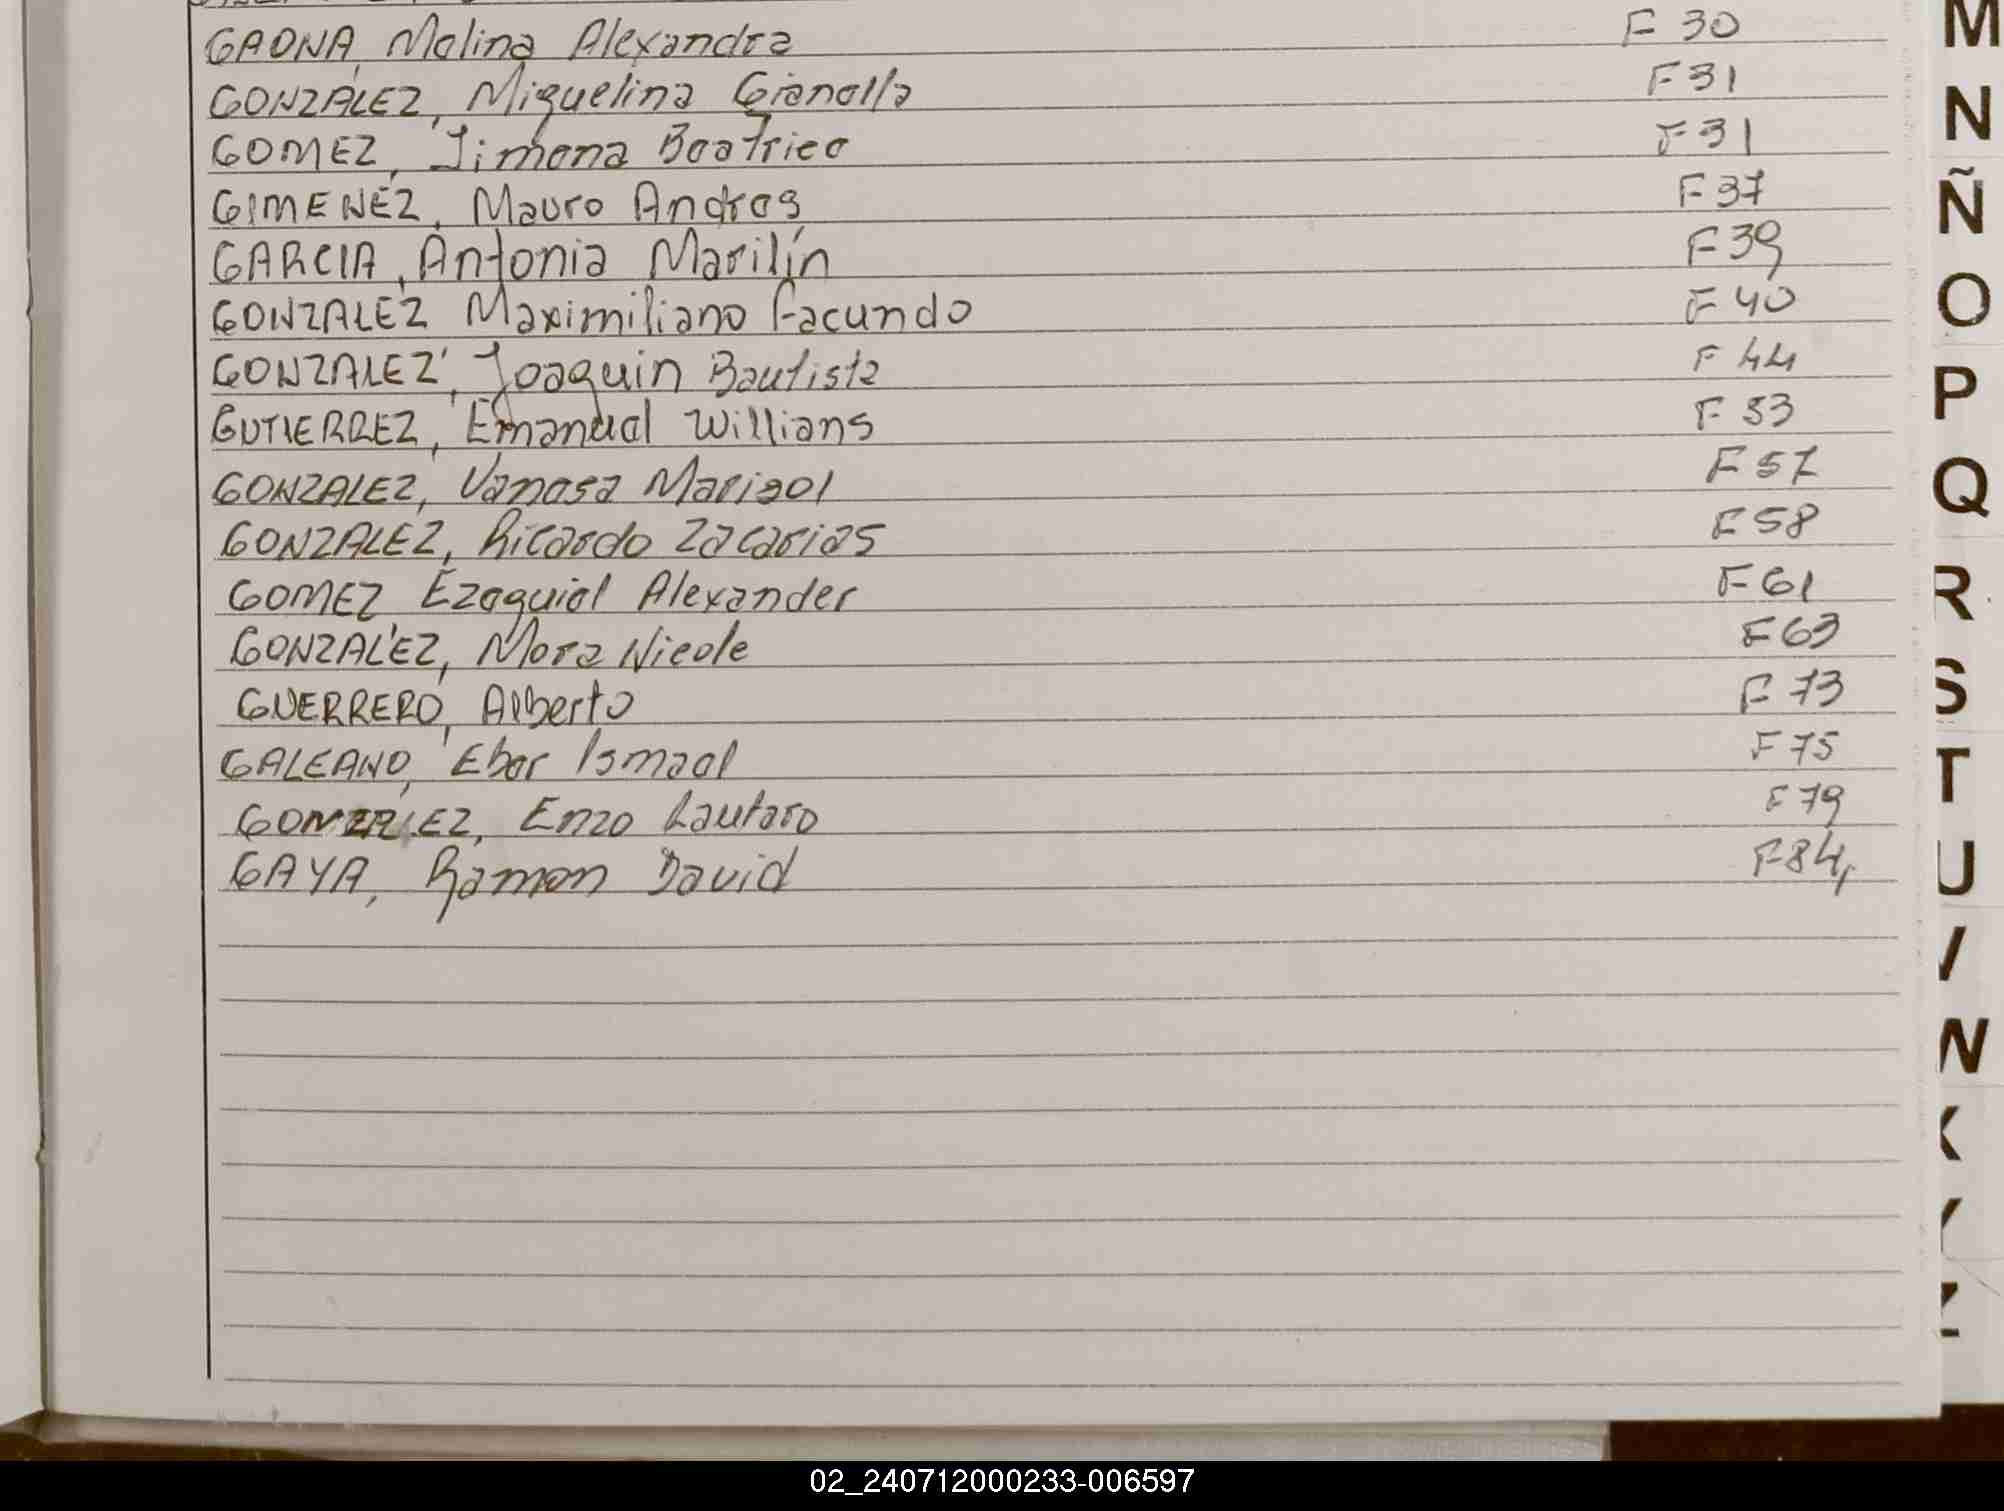 GAONA, Melina Alexandra F 30
GONZALEZ, Miguelina Gianella F 31
GOMEZ, Jimena Beatriec F 31
GIMENEZ, Mauro Andres F 37
GARCIA, Antonia Marilín F 39
GONZALEZ Maximiliano Facundo F 40
GONZALEZ, Joaquin Bautista F 44
GUTIERREZ, Emanuel Willians F 53
GONZALEZ, Vanesa Marisol F 57
GONZALEZ, Ricardo Zacarias F 58
GOMEZ Ezequiel Alexander F 61
GONZALEZ, Mora Nicole F 63
GUERRERO, Alberto F 73
GALEANO, Eber Ismael F 75
GONZALEZ, Enzo Lautaro F 79
GAYA, Ramon David F 84,
M
N
Ñ
O
P
Q
R
S
T
U
V
W
X
Y
Z
02_240712000233-006597